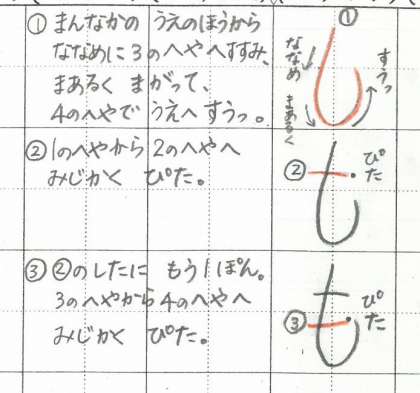 ① まんなかの うえのほうから
ななめに3のへやへすすみ、
まあるく まがって、
4のへやで うえへ すうっ。
①
ななめ
まあるく
すうっ
②1のへやから 2のへやへ
みじかく ぴた。
②
ぴた
③②のしたに もう1ぽん。
3のへやから4のへやへ
みじかく ぴた。
③
ぴた